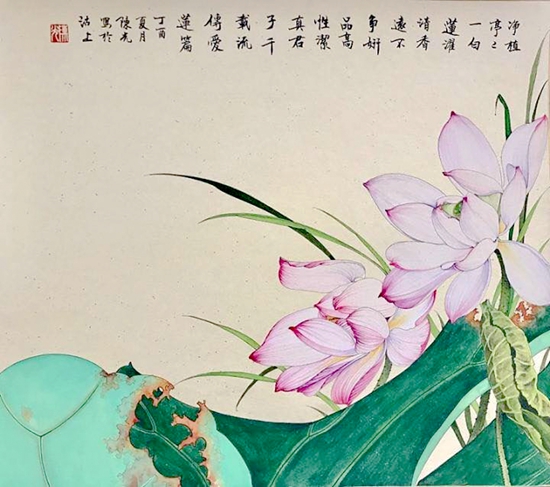 净植
亭々
一白
蓮濯
清香
遠不
争妍
品高
性潔
真君
子千
載流
傳愛
蓮篇
丁酉
夏月
寫於
沽上